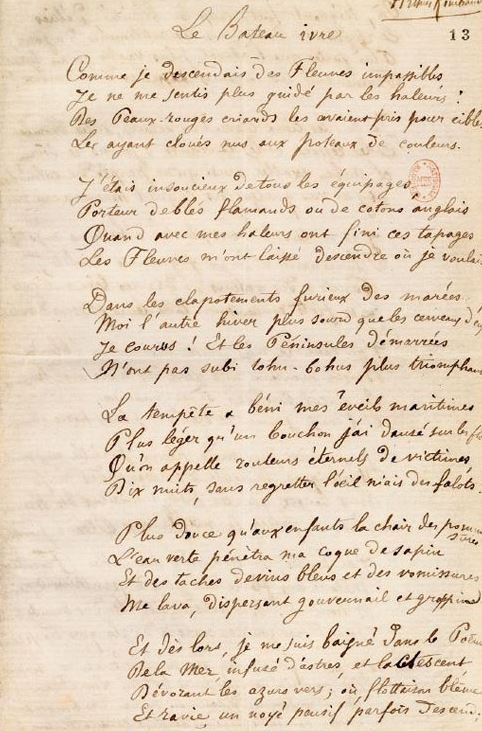 Arthur Rimbaud
13
Le Bateau ivre
Comme je descendais des Fleuves impassibles
Je ne me sentis plus guidé par les haleurs :
Des Peaux-rouges criards les avaient pris pour cibles
Les ayant cloués nus aux poteaux de couleurs.
J'étais insoucieux de tous les équipages,
Porteur de blés flamands ou de cotons anglais
Quand avec mes haleurs ont fini ces tapages
Les Fleuves m'ont laissé descendre où je voulais
Dans les clapotements furieux des marées
Moi l'autre hiver plus sourd que les cerveaux d'
Je courus ! Et les Péninsules démarrées
N'ont pas subi tohu-bohus plus triomphan
La tempête a béni mes éveils maritimes
Plus léger qu'un bouchon j'ai dansé sur les fl
Qu'on appelle rouleurs éternels de victimes,
Dix nuits, sans regretter l'œil niais des falots.
Plus douce qu'aux enfants la chair des pommes
sûres
L'eau verte pénétra ma coque de sapin
Et des taches de vins bleus et des vomissures
Me lava, dispersant gouvernail et grappin
Et dès lors, je me suis baigné dans le Poëm
De la Mer, infusé d'astres, et lactescent
Dévorant les azurs vers ; où, flottaison blême
Et ravie, un noyé pensif parfois descend ;